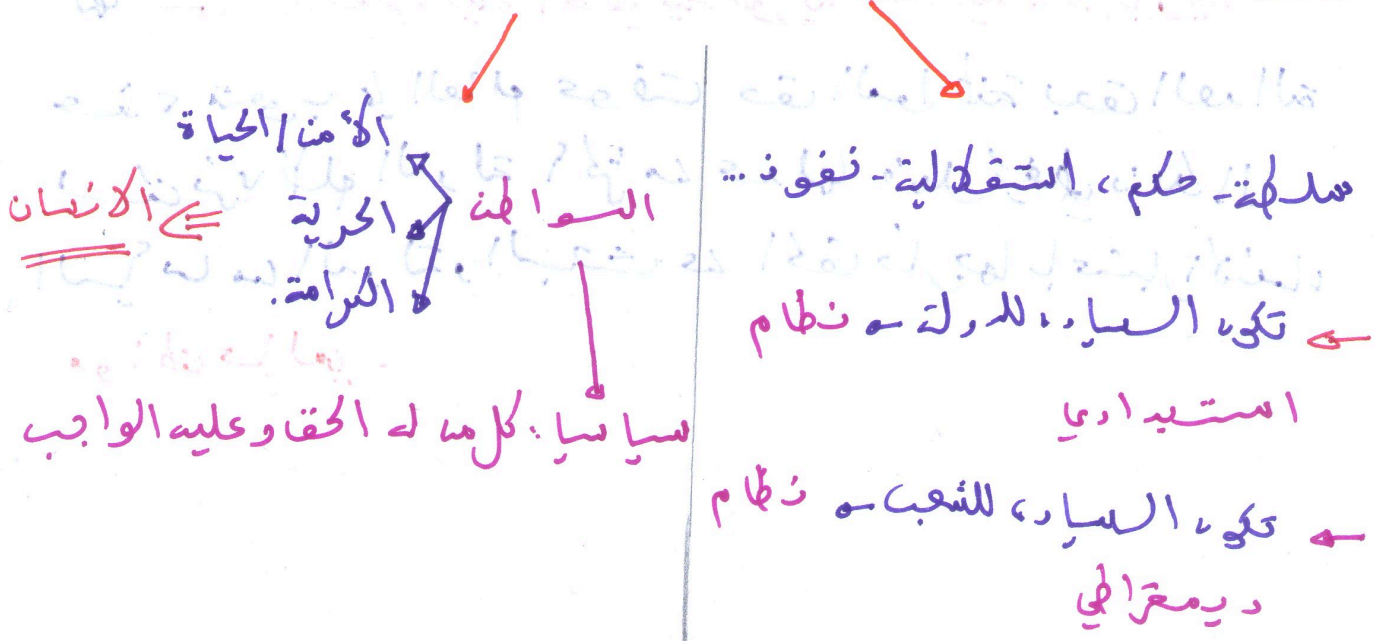 سلطة - حكم، استقلالية - نفوذ...
← تكون السيادة للدولة → نظام
استبدادي
← تكون السيادة للشعب → نظام
ديمقراطي
المواطن
الأمن/الحياة
الحرية
الكرامة.
⇐ الانسان
سياسيا: كل من له الحق وعليه الواجب